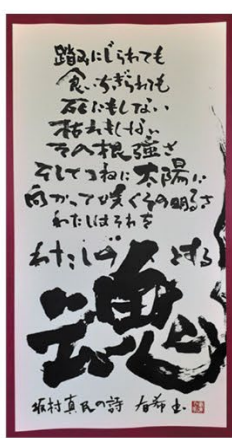 踏みにじられても
食いちぎられても
死にもしない
枯れもしない
その根強さ
そしてつねに太陽に
向かって咲くその明るさ
わたしはそれを
わたしの とする
魂
坂村真民の詩 春希 書